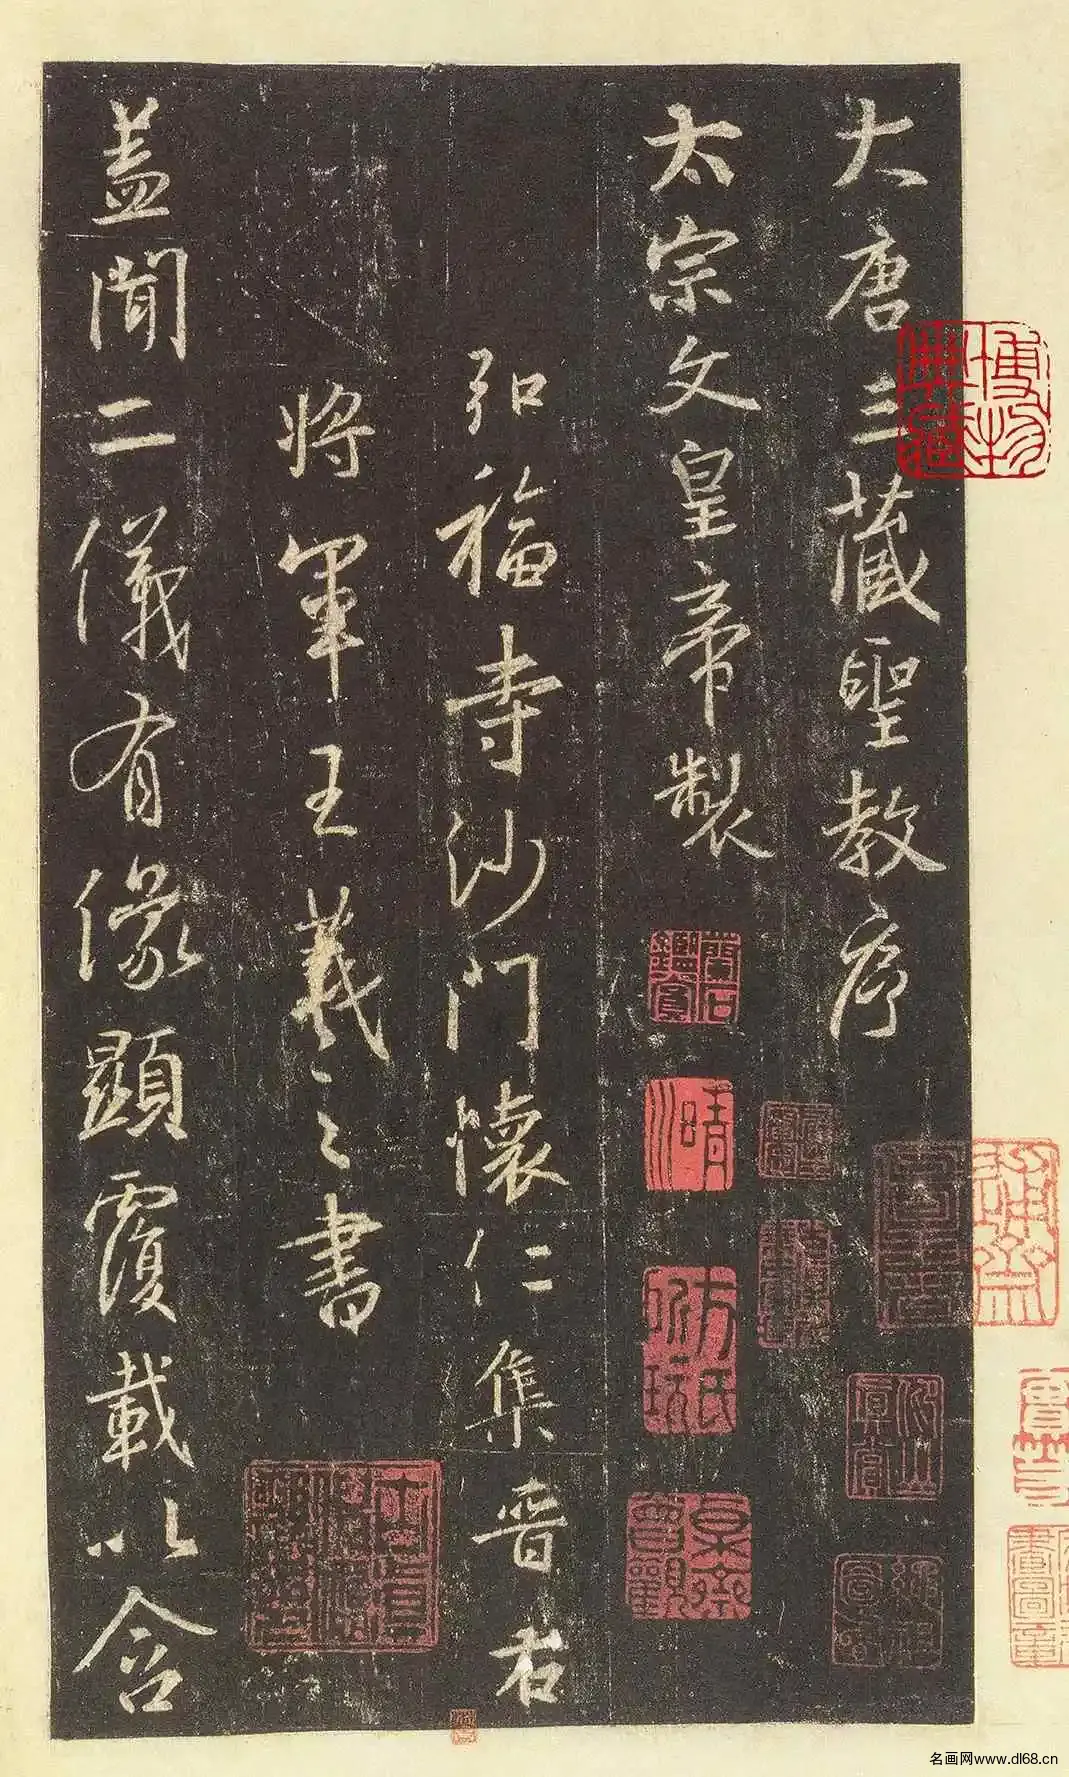 大唐三藏聖教序
太宗文皇帝製
弘福寺沙門懷仁集晉右
將軍王羲之書
蓋聞二儀有像顯覆載以含
名画网www.dl68.cn